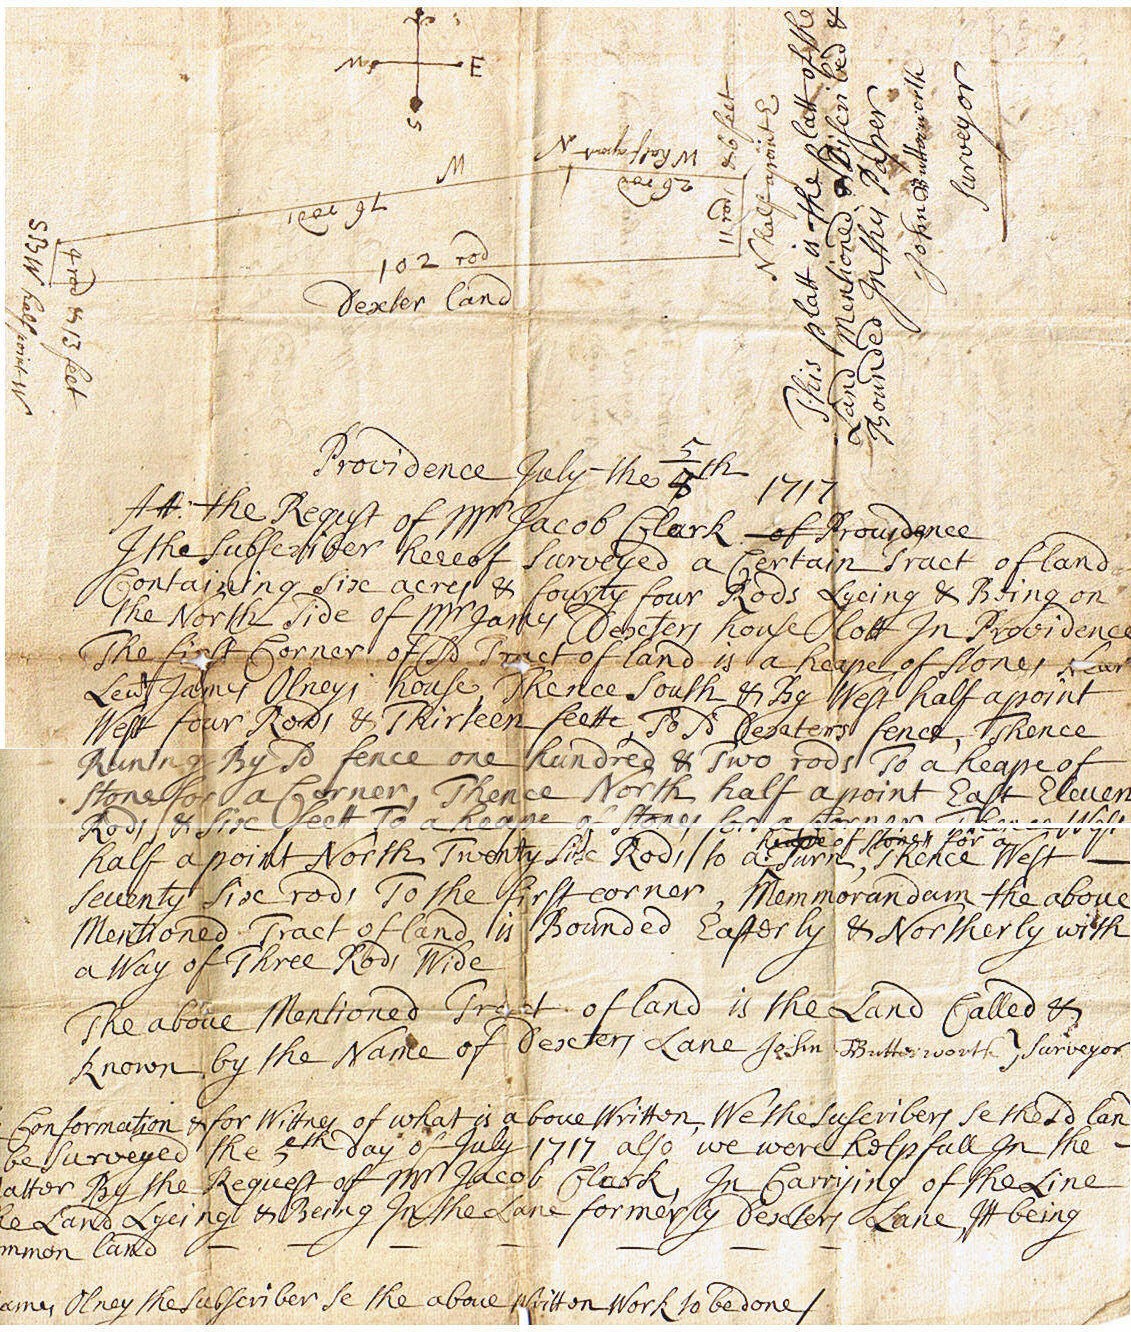 E
S
W
W
N
W half a point
76 rod
26 rod
11 rod & 6 feet
N half a point E
102 rod
Dexter land
4 rod & 13 feet
S B W half point W
This platt is the platt of the
Land Mentioned & Discribed &
Bounded In this Paper
John Butterworth
surveyor
Providence July the 5/8th 1717
Att the Requst of Mr Jacob Clark of Providence
I the subscriber hereof surveyed a Certain Tract of land
Containing six acres & fourty four Rods Lyeing & Being on
the North side of Mr James Dexters house lott In Providence
The first Corner of Sd Tract of land is a heape of stones Near
Lewt James Olneys house, Thence South & By West half a point
West four Rods & Thirteen feett, To Sd Dexters fence, Thence
Runing By Sd fence one hundred & Two rods To a heape of
stones for a Corner, Thence North half a point East Eleven
Rods & six feett To a heape of stones for a corner Thence West
heape of stones for a
half a point North Twenty six Rods to a Turn, Thence West
seventy six rods To the first corner, Memmorandam the above
Mentioned Tract of land is Bounded Easterly & Northerly with
a Way of Three Rods Wide
The above Mentioned Tract of land is the Land Called &
known by the Name of Dexters Lane John Butterworth } surveyor
Conformation & for Wittnes of what is above Written, We the suscribers se the Sd lan
be surveyed the 5th Day of July 1717 also we were helpfull In the
atter By the Request of Mr Jacob Clark, In Carrying of the Line
he Land Lyeing & Being In the Lane formerly Dexters Lane, It being
mmon land
ames Olney the subscriber se the above Written Work to be done /